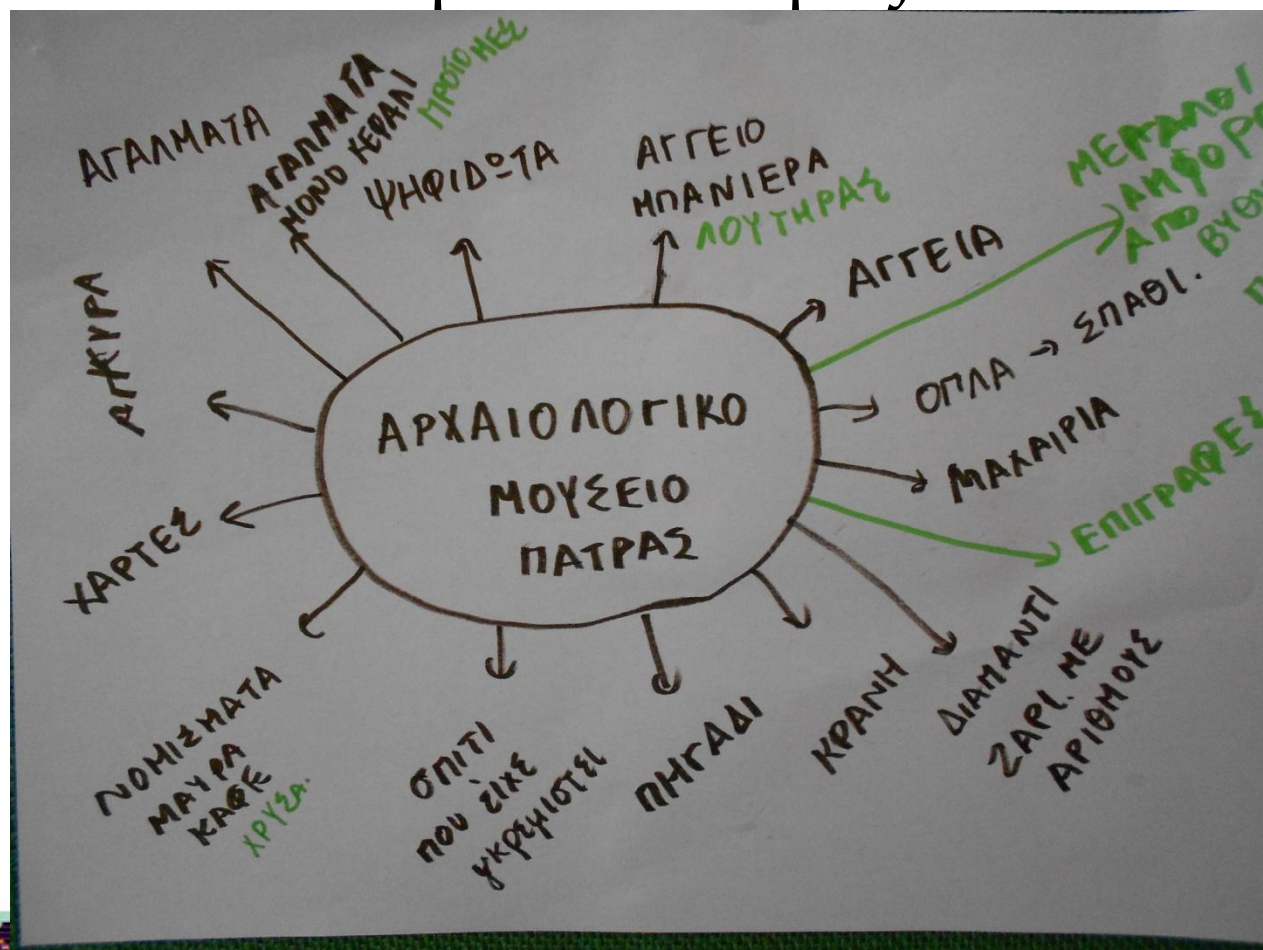 ΑΡΧΑΙΟΛΟΓΙΚΟ
ΜΟΥΣΕΙΟ
ΠΑΤΡΑΣ
ΑΓΑΛΜΑΤΑ
ΑΓΑΛΜΑΤΑ
ΜΟΝΟ ΚΕΦΑΛΙ
ΠΡΟΤΟΜΕΣ
ΨΗΦΙΔΩΤΑ
ΑΓΓΕΙΟ
ΜΠΑΝΙΕΡΑ
ΛΟΥΤΗΡΑΣ
ΑΓΓΕΙΑ
ΜΕΓΑΛΟΙ
ΑΜΦΟΡ
ΑΠΟ ΒΥΘ
ΟΠΛΑ → ΣΠΑΘΙ.
ΜΑΧΑΙΡΙΑ
ΕΠΙΓΡΑΦΕΣ
ΔΙΑΜΑΝΤΙ
ΖΑΡΙ. ΜΕ
ΑΡΙΘΜΟΥΣ
ΚΡΑΝΗ
ΠΗΓΑΔΙ
σπιτι
που είχε
γκρεμιστεί
ΝΟΜΙΣΜΑΤΑ
ΜΑΥΡΑ
ΚΑΦΕ
ΧΡΥΣΑ.
ΧΑΡΤΕΣ
ΑΓΚΥΡΑ